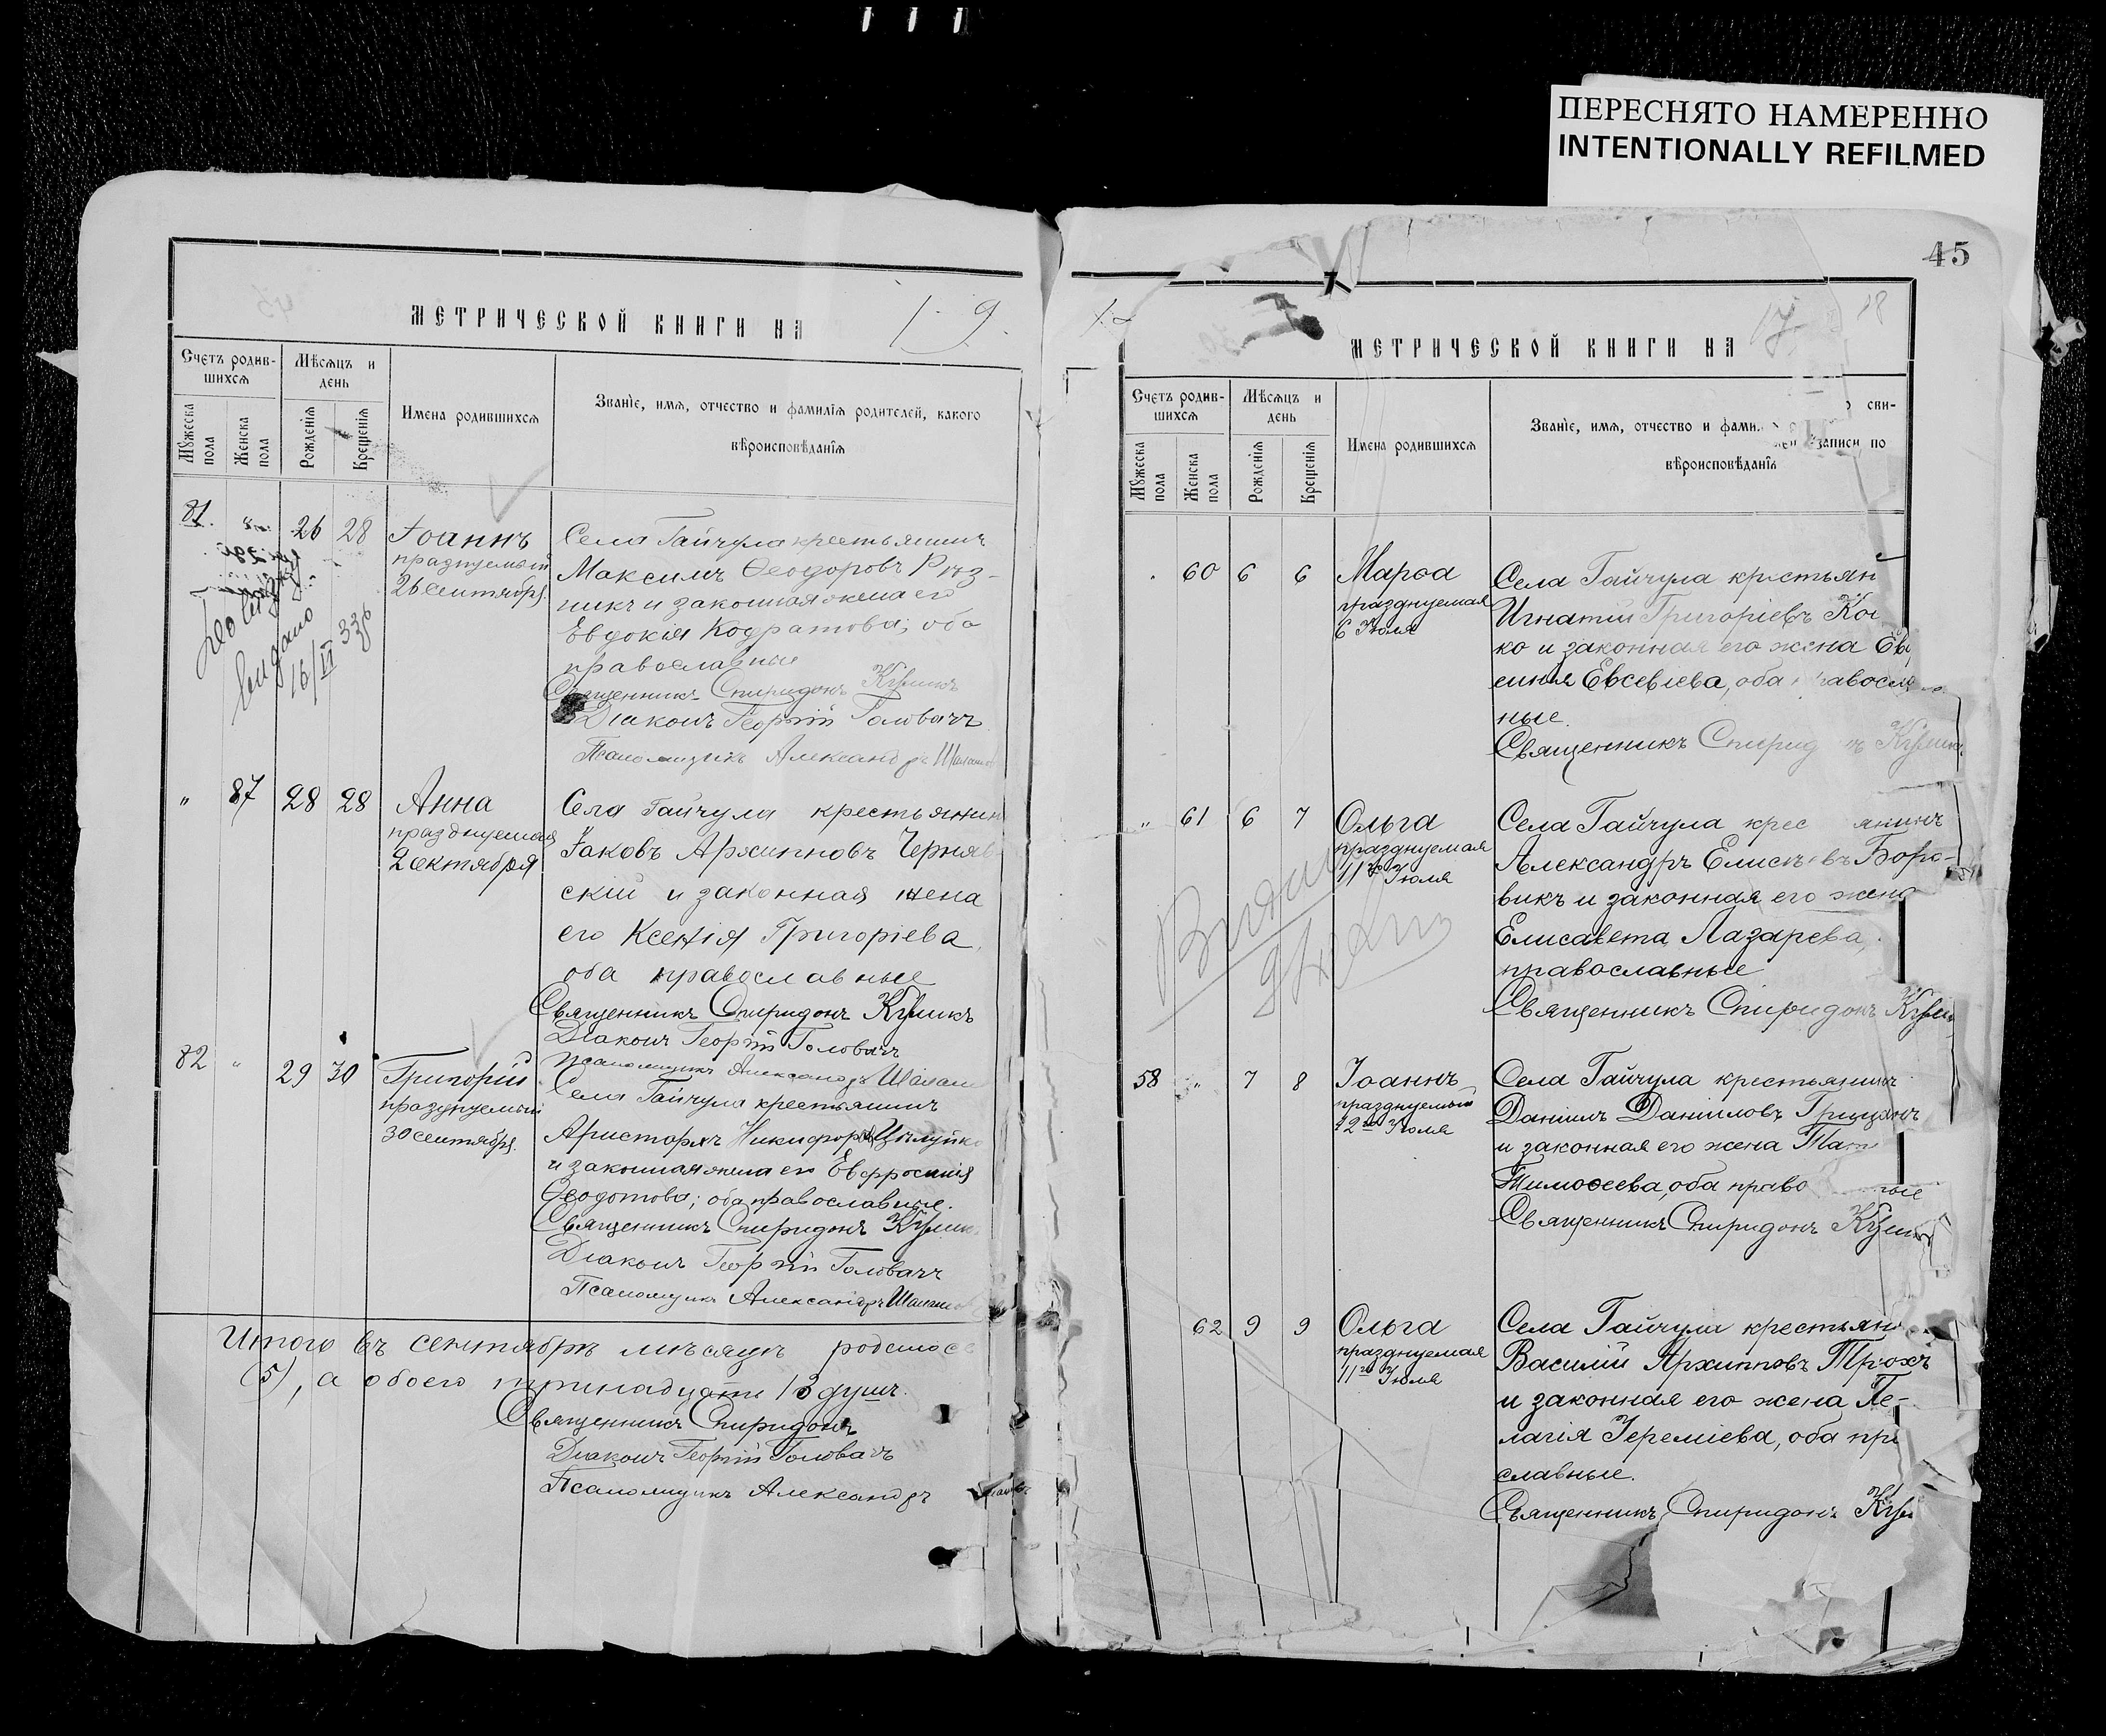 ПЕРЕСНЯТО НАМЕРЕННО
INTENTIONALLY REFILMED
МЕТРИЧЕСКОЙ КНИГИ НА
Счетъ родив-
шихсѧ
Мѣсѧцъ и
день
Мꙋжеска пола
Женска пола
Рожденїѧ
Крещенїѧ
Имена родившихсѧ
Званїе, имѧ, отчество и фамилїѧ родителей, какого
вѣроисповѣданїѧ
81. " 26 28 Іоаннъ
празднуемый
26 Сентября
Села Гайчула крестьянинъ
Максимъ Ѳеодоровъ Рѣз-
никъ и законная жена его
Евдокія Кодратова; оба
православные
Священникъ Спиридонъ Куликъ
Діаконъ Георгій Головачъ
Псаломщикъ Александръ
Выдано
16/VI 33р
" 87 28 28 Анна
празднуемая
2 октября
Села Гайчула крестьянин
Іаковъ Архипповъ Черняв-
скій и законная жена
его Ксенія Григоріева
оба православные
Священникъ Спиридонъ Куликъ
Діаконъ Георгій Головачъ
Псаломщикъ Александръ
82 " 29 30 Григорій
празднуемый
30 сентября.
Села Гайчула крестьянинъ
Аристархъ Никифоровъ
и законная жена его Евфросинія
Ѳеодотова; оба православные.
Священникъ Спиридонъ Кулик
Діаконъ Георгій Головачъ
Псаломщикъ Александръ
Итого въ сентябрѣ мѣсяцѣ
(5), а обоего тринадцать 13 душъ.
Священникъ Спиридонъ
Діаконъ Георгій Головачъ
Псаломщикъ Александръ
45
МЕТРИЧЕСКОЙ КНИГИ НА
Счетъ родив-
шихсѧ
Мѣсѧцъ и
день
Мꙋжеска пола
Женска пола
Рожденїѧ
Крещенїѧ
Имена родившихсѧ
Званїе, имѧ, отчество и фами
вѣроисповѣданїѧ
сви-
записи по
60 6 6 Марѳа
празднуемая
6 Іюля
Села Гайчула крестьян
Игнатій Григоріевъ
ко и законная его жена
Евсевіева, оба
ные.
Священникъ Спирид Кулик
" 61 6 7 Ольга
празднуемая
11го Іюля
Села Гайчула крес янинъ
Александръ Боро-
викъ и законная его жена
Елисавета Лазарева,
православные
Священникъ Спиридонъ Кули
58 " 7 8 Іоаннъ
празднуемый
12го Іюля
Села Гайчула крестьянинъ
Даніилъ Даніиловъ Грицанъ
и законная его жена
Тимоѳеева, оба право ные
Священникъ Спиридонъ Кули
62 9 9 Ольга
празднуемая
11го Іюля
Села Гайчула крестьяни
Василій Архипповъ Трюхъ
и законная его жена Пе-
лагія Іереміева, оба пра
славные.
Священникъ Спиридонъ Кул